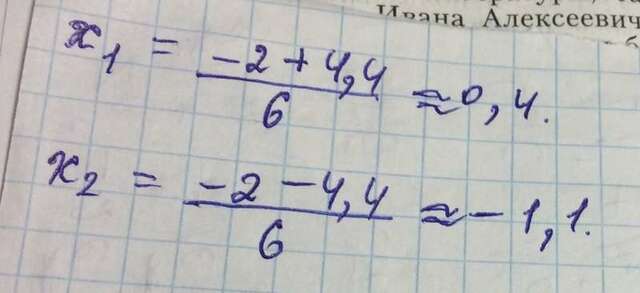 Ивана Алексеевич
x₁ = (-2 + 4,4)/6 ≈ 0,4.
x₂ = (-2 - 4,4)/6 ≈ -1,1.